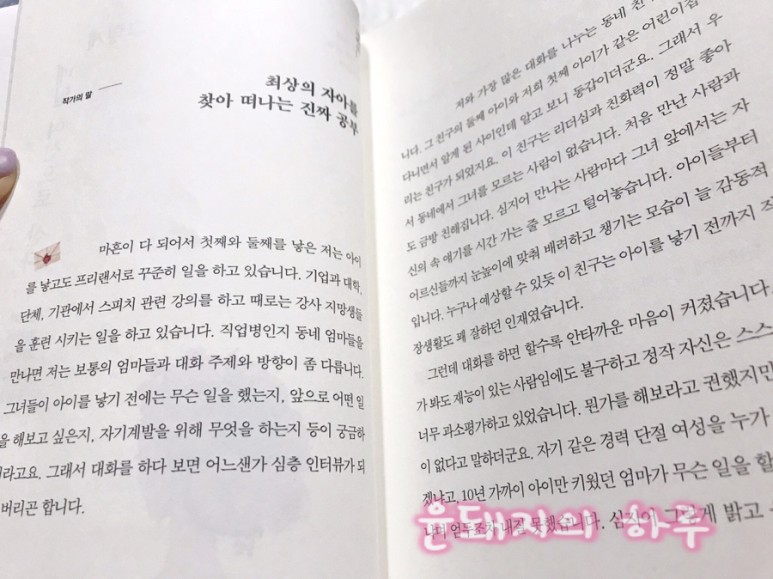 작가의 말
최상의 자아를
찾아 떠나는 진짜 공부
마흔이 다 되어서 첫째와 둘째를 낳은 저는 아이
를 낳고도 프리랜서로 꾸준히 일을 하고 있습니다. 기업과 대학,
단체, 기관에서 스피치 관련 강의를 하고 때로는 강사 지망생들
을 훈련 시키는 일을 하고 있습니다. 직업병인지 동네 엄마들을
만나면 저는 보통의 엄마들과 대화 주제와 방향이 좀 다릅니다.
그녀들이 아이를 낳기 전에는 무슨 일을 했는지, 앞으로 어떤 일
을 해보고 싶은지, 자기계발을 위해 무엇을 하는지 등이 궁금하
더라고요. 그래서 대화를 하다 보면 어느샌가 심층 인터뷰가 되
버리곤 합니다.
저와 가장 많은 대화를 나누는 동네 친
니다. 그 친구의 둘째 아이와 저희 첫째 아이가 같은 어린이집
다니면서 알게 된 사이인데 알고 보니 동갑이더군요. 그래서 우
리는 친구가 되었지요. 이 친구는 리더십과 친화력이 정말 좋아
서 동네에서 그녀를 모르는 사람이 없습니다. 처음 만난 사람과
도 금방 친해집니다. 심지어 만나는 사람마다 그녀 앞에서는 자
신의 속 얘기를 시간 가는 줄 모르고 털어놓습니다. 아이들부터
어르신들까지 눈높이에 맞춰 배려하고 챙기는 모습이 늘 감동적
입니다. 누구나 예상할 수 있듯 이 친구는 아이를 낳기 전까지 직
장생활도 꽤 잘하던 인재였습니다.
그런데 대화를 하면 할수록 안타까운 마음이 커졌습니다.
가 봐도 재능이 있는 사람임에도 불구하고 정작 자신은 스스
너무 과소평가하고 있었습니다. 뭔가를 해보라고 권했지만
이 없다고 말하더군요. 자기 같은 경력 단절 여성을 누가
겠냐고, 10년 가까이 아이만 키웠던 엄마가 무슨 일을 할
심지어 그렇게 밝고
윤돼지의 하루